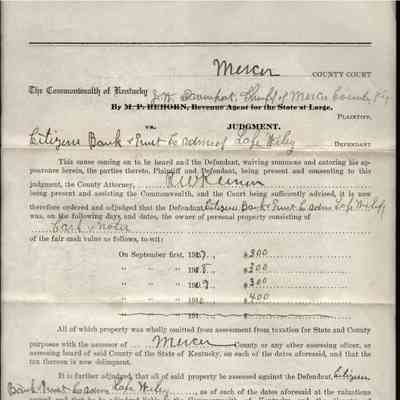 Mercer COUNTY COURT
The Commonwealth of Kentucky J.W. Davenport, Sheriff of Mercer County Ky
By M. P. REHORN, Revenue Agent for the State at Large,
PLAINTIFF,
vs. JUDGMENT.
Citizens Bank & Trust Co admr of Lafe Wiley DEFENDANT
This cause coming on to be heard and the Defendant, waiving summons and entering his ap-
pearance herein, the parties thereto, Plaintiff and Defendant, being present and consenting to this
judgment, the County Attorney,
being present and assisting the Commonwealth, and the Court being sufficiently advised, it is now
therefore ordered and adjudged that the Defendant Citizens Bank & Trust Co admr Lafe Wiley
was, on the following days and dates, the owner of personal property consisting of
Cash & notes
of the fair cash value as follows, to-wit:
On September first, 1907, $300
" " " 1908, $300
" " " 1909, $300
" " " 1910 $400
191
All of which property was wholly omitted from assessment from taxation for State and County
purposes with the assessor of Mercer County or any other assessing officer, or
assessing board of said County of the State of Kentucky, on each of the dates aforesaid, and that the
tax thereon is now delinquent.
It is further adjudged, that all of said property be assessed against the Defendant, Citizens
Bank & Trust Co admr Lafe Wiley, as of each of the dates aforesaid at the valuations